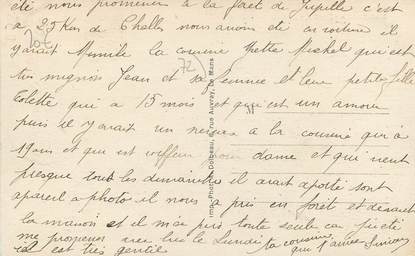 été nous promener à la foret de Jupille c'est
a 25 Km de Challes nous avions été en voiture il
y avait Mimile la cousine Yvette Michel qui est
très mignon Jean et sa femme et leur petite fille
Colette qui a 15 mois et qui est un amour
puis il y avait un neveu a la cousine qui a
19 ans et qui est coiffeur pour dame et qui vient
presque tout les dimanche il avait aporté sont
apareil a photo il nous a pris en forêt et devant
la maison et il m'a pris toute seule
me promener avec lui le Lundi ta cousine
il est très gentil qui t'aime
72
Imp.-Photo. Dolbeau, rue Auvray, Le Mans